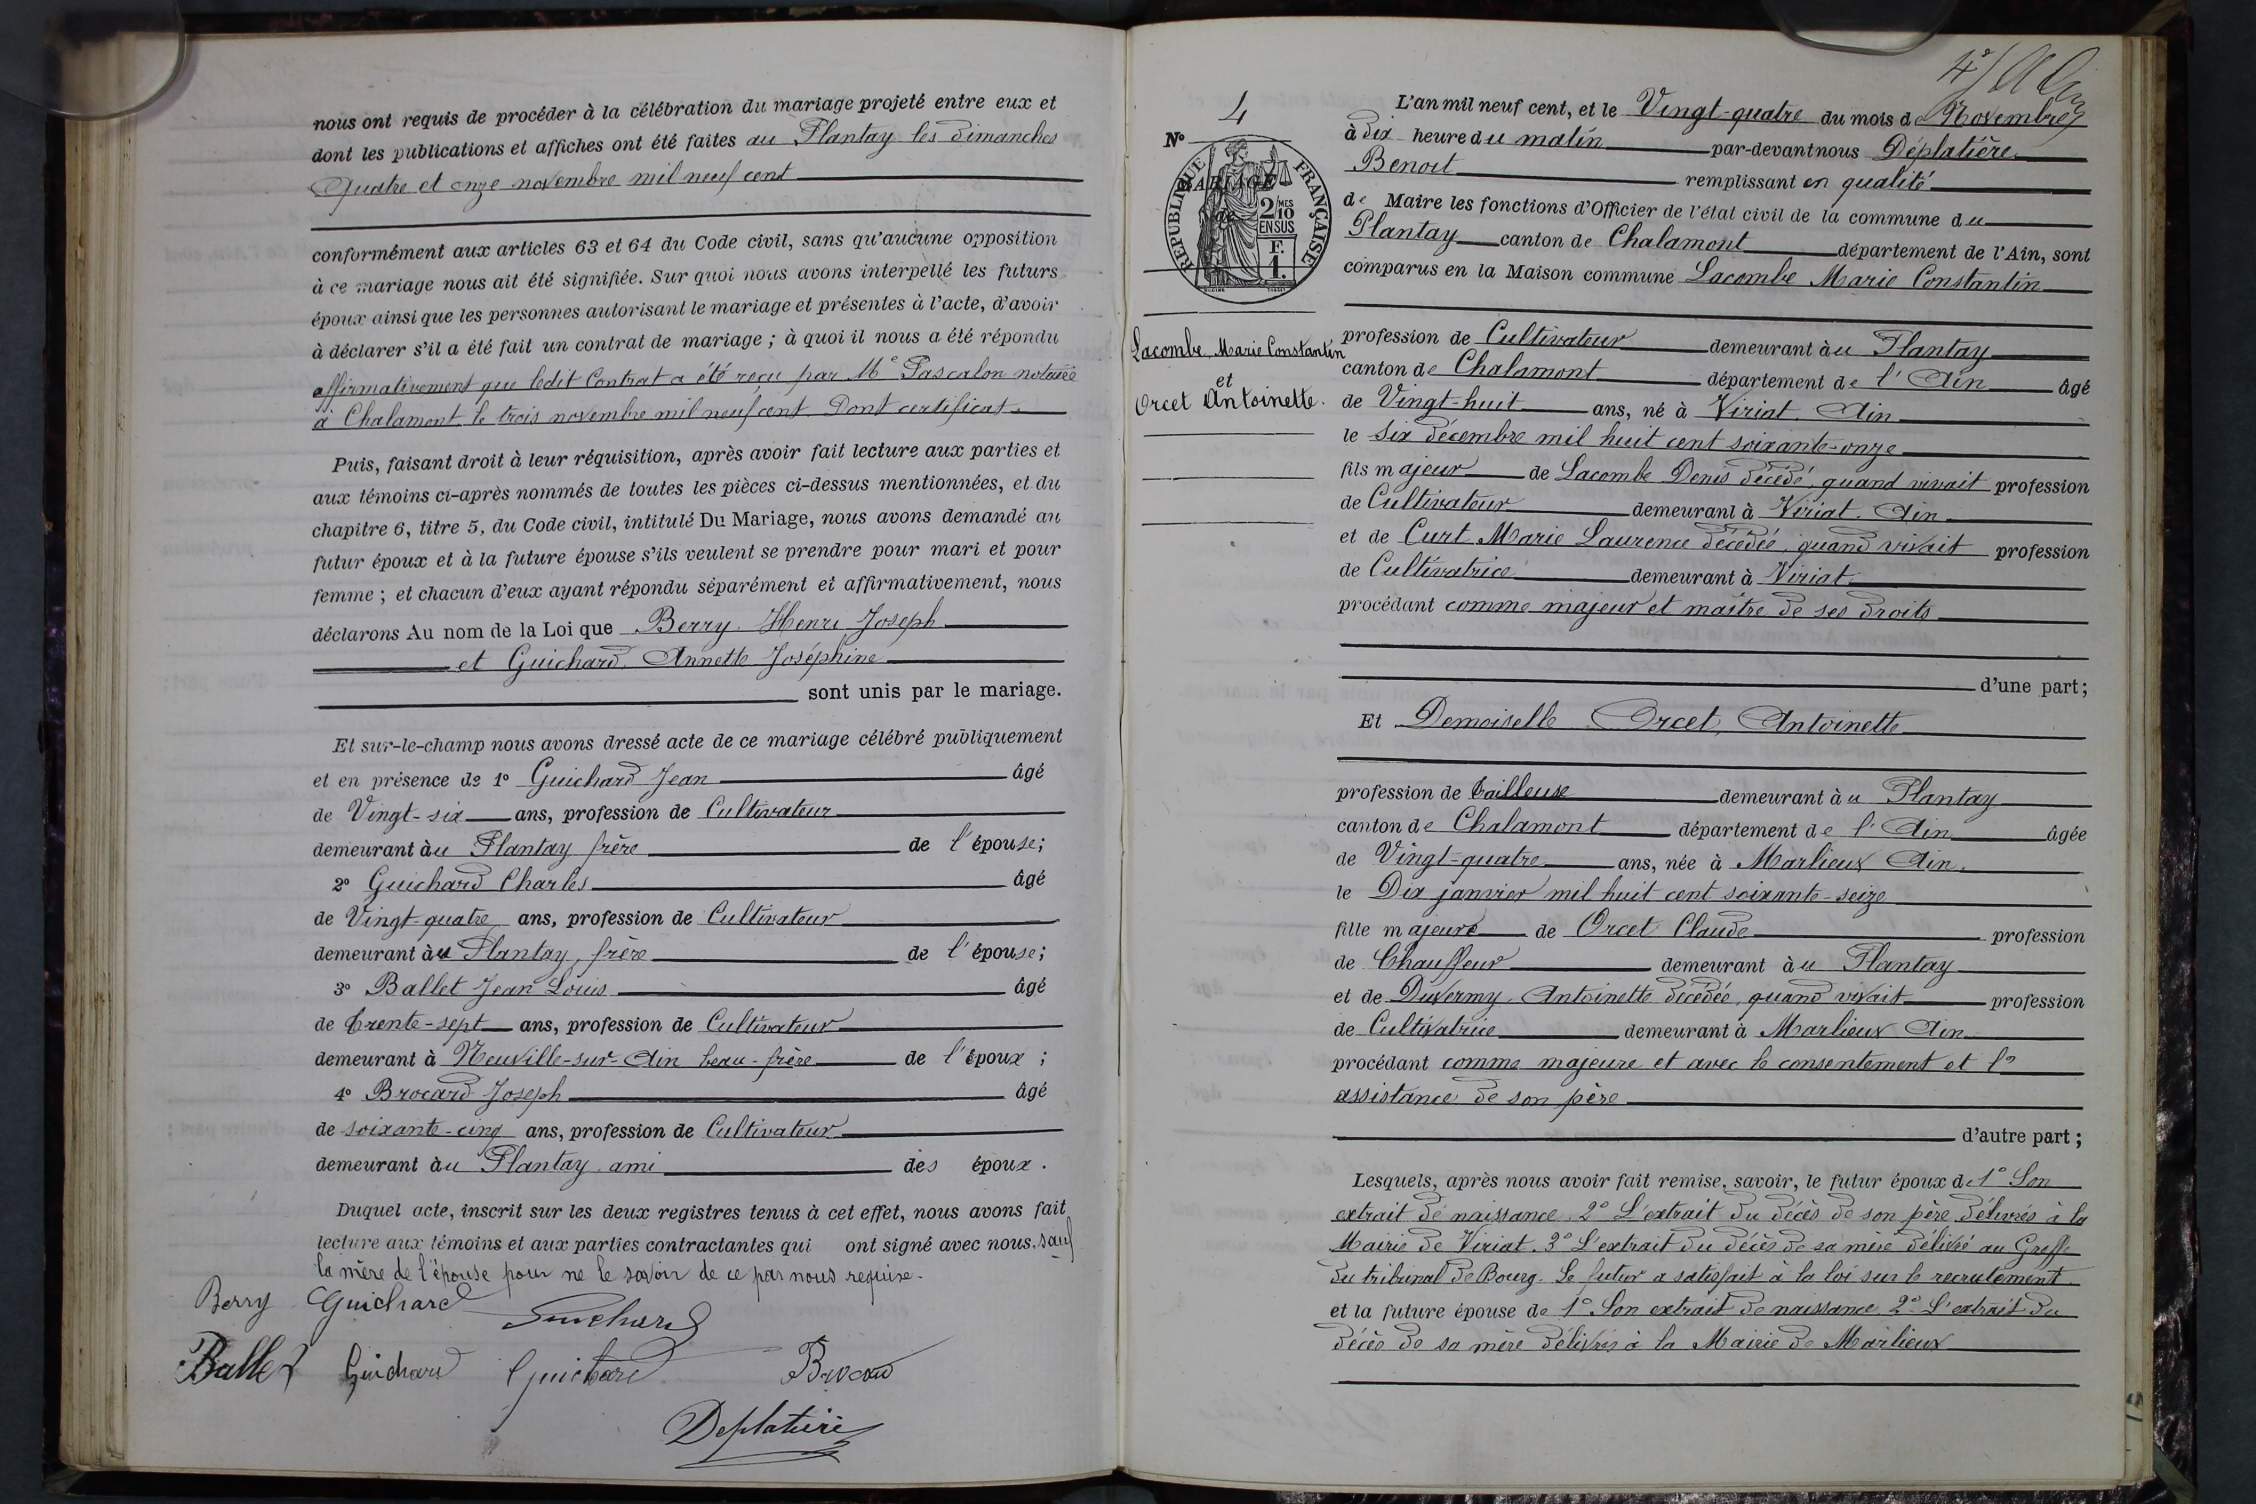 nous ont requis de procéder à la célébration du mariage projeté entre eux et
dont les publications et affiches ont été faites au Plantay les dimanches
Quatre et onze novembre mil neuf cent
conformément aux articles 63 et 64 du Code civil, sans qu'aucune opposition
à ce mariage nous ait été signifiée. Sur quoi nous avons interpellé les futurs
époux ainsi que les personnes autorisant le mariage et présentes à l'acte, d'avoir
à déclarer s'il a été fait un contrat de mariage ; à quoi il nous a été répondu
affirmativement que ledit Contrat a été reçu par Me Pascalon notaire
à Chalamont le trois novembre mil neuf cent Dont certificat.
Puis, faisant droit à leur réquisition, après avoir fait lecture aux parties et
aux témoins ci-après nommés de toutes les pièces ci-dessus mentionnées, et du
chapitre 6, titre 5, du Code civil, intitulé Du Mariage, nous avons demandé au
futur époux et à la future épouse s'ils veulent se prendre pour mari et pour
femme ; et chacun d'eux ayant répondu séparément et affirmativement, nous
déclarons Au nom de la Loi que Berry Henri Joseph
et Guichard Annette Joséphine
sont unis par le mariage.
Et sur-le-champ nous avons dressé acte de ce mariage célébré publiquement
et en présence de 1° Guichard Jean âgé
de Vingt-six ans, profession de Cultivateur
demeurant au Plantay frère de l'épouse;
2° Guichard Charles âgé
de Vingt-quatre ans, profession de Cultivateur
demeurant au Plantay, frère de l'épouse;
3° Ballet Jean Louis âgé
de trente-sept ans, profession de Cultivateur
demeurant à Neuville-sur-Ain beau-frère de l'époux ;
4° Brocard Joseph âgé
de soixante-cinq ans, profession de Cultivateur
demeurant au Plantay ami des époux.
Duquel acte, inscrit sur les deux registres tenus à cet effet, nous avons fait
lecture aux témoins et aux parties contractantes qui ont signé avec nous, sauf
la mère de l'épouse pour ne le savoir de ce par nous requise.
Berry Guichard Guichard
Ballet Guichard Guichard Brocard
Deplatière
4e
4
N°
MARIAGE
de
REPUBLIQUE FRANÇAISE
2/10 MES
EN SUS
F.
1.
Lacombe Marie Constantin
et
Orcet Antoinette.
L'an mil neuf cent, et le Vingt-quatre du mois de Novembre
à dix heure du matin par-devant nous Déplatière
Benoit remplissant en qualité
de Maire les fonctions d'Officier de l'état civil de la commune du
Plantay canton de Chalamont département de l'Ain, sont
comparus en la Maison commune Lacombe Marie Constantin
profession de Cultivateur demeurant au Plantay
canton de Chalamont département de l'Ain âgé
de Vingt-huit ans, né à Viriat, Ain
le Six décembre mil huit cent soixante-onze
fils majeur de Lacombe Denis décédé, quand vivait profession
de Cultivateur demeurant à Viriat. Ain
et de Curt Marie Laurence décédée, quand vivait profession
de Cultivatrice demeurant à Viriat
procédant comme majeur et maître de ses droits
d'une part;
Et Demoiselle Orcet, Antoinette
profession de tailleuse demeurant au Plantay
canton de Chalamont département de l'Ain âgée
de Vingt-quatre ans, née à Marlieux Ain.
le Dix janvier mil huit cent soixante-seize
fille majeure de Orcet Claude profession
de Chauffeur demeurant au Plantay
et de Duvermy Antoinette décédée, quand vivait profession
de Cultivatrice demeurant à Marlieux Ain
procédant comme majeure et avec le consentement et l'
assistance de son père
d'autre part ;
Lesquels, après nous avoir fait remise, savoir, le futur époux de 1° Son
extrait de naissance 2° L'extrait du décès de son père délivrés à la
Mairie de Viriat. 3° L'extrait du décès de sa mère délivré au Greffe
du tribunal de Bourg. Le futur a satisfait à la loi sur le recrutement
et la future épouse de 1° Son extrait de naissance 2° L'extrait du
décès de sa mère délivrés à la Mairie de Marlieux